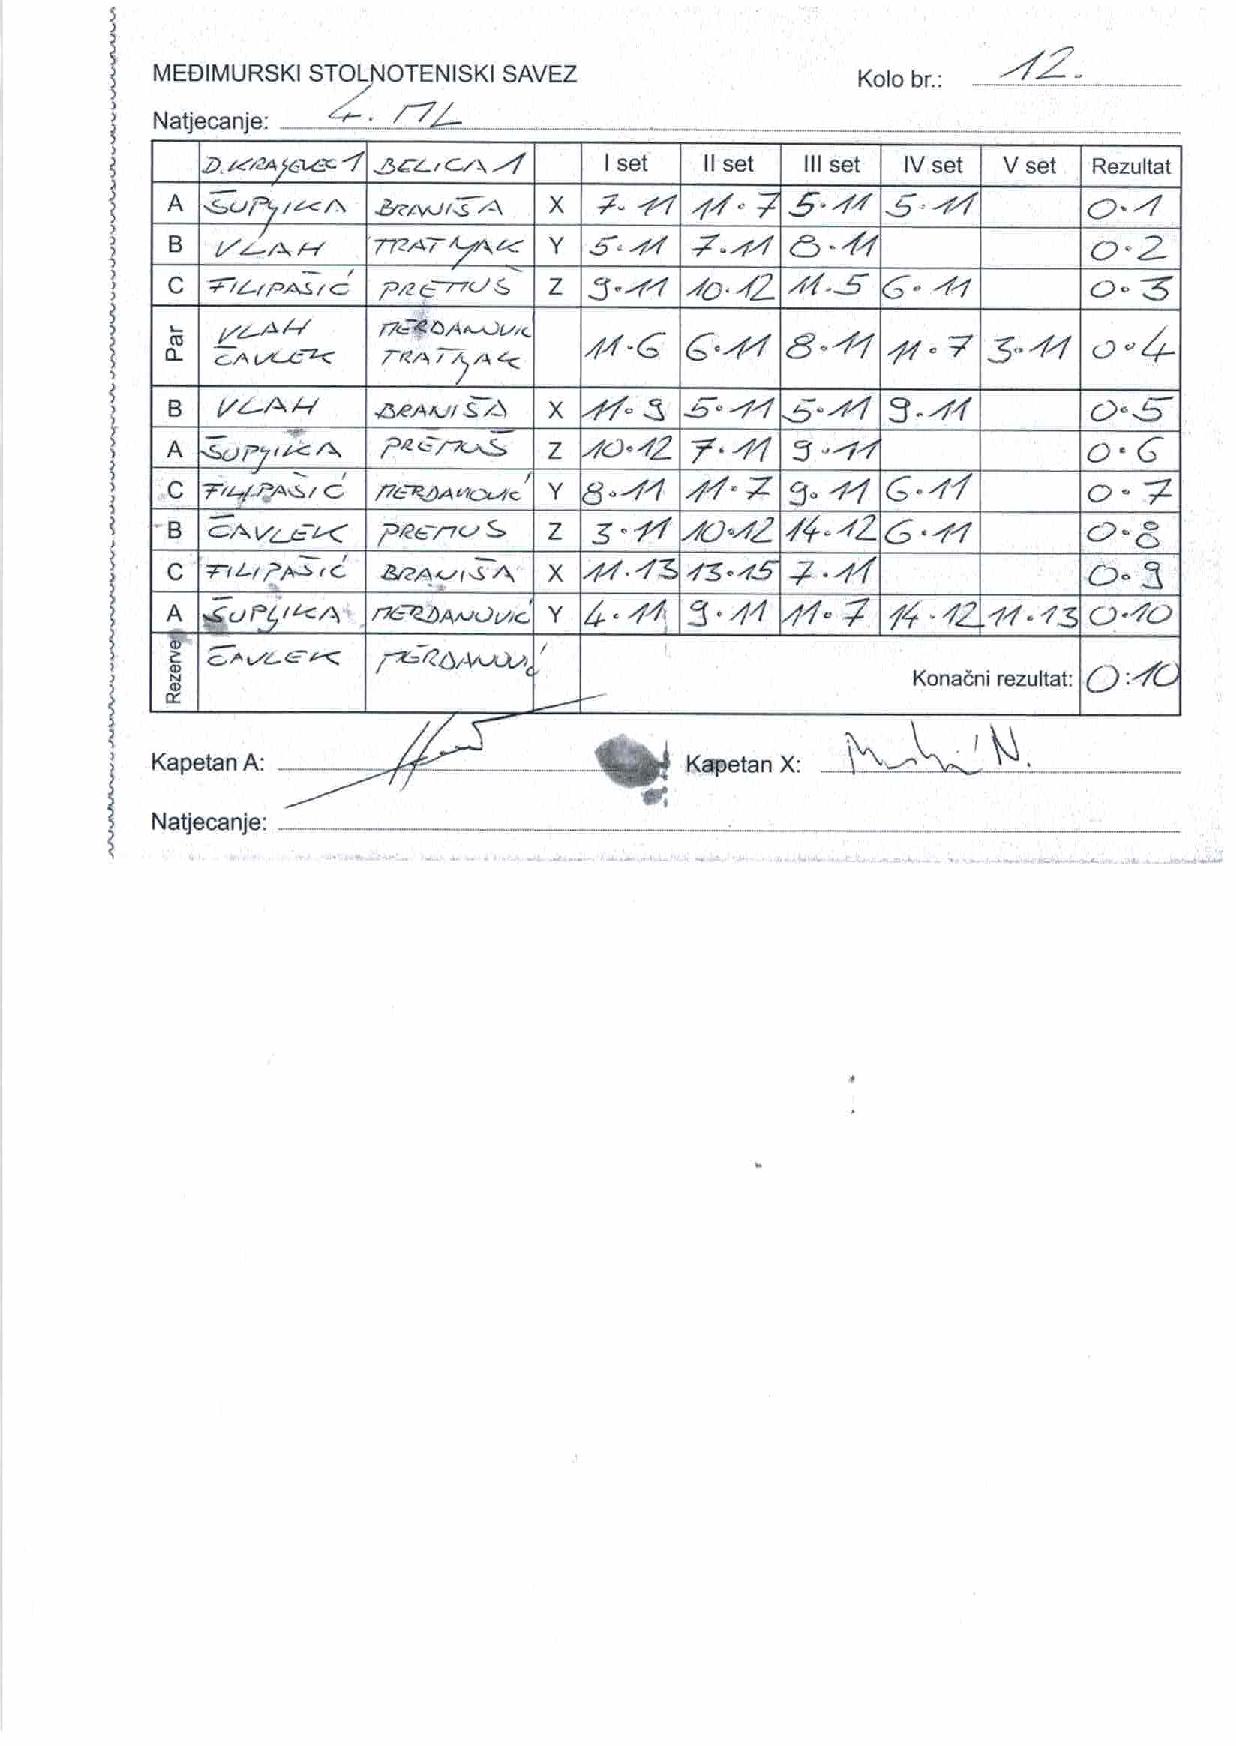 MEĐIMURSKI STOLNOTENISKI SAVEZ Kolo br.: 12.
Natjecanje: 4. ML
D.KRALJEVEC 1 BELICA 1 I set II set III set IV set V set Rezultat
A ŠUPLJIKA BRANIŠA X 7·11 11·7 5·11 5·11 0·1
B VLAH TRATNJAK Y 5·11 7·11 8·11 0·2
C FILIPAŠIĆ PREMUŠ Z 9·11 10·12 11·5 6·11 0·3
Par VLAH MERDANOVIĆ
ČAVLEK TRATNJAK 11·6 6·11 8·11 11·7 3·11 0·4
B VLAH BRANIŠA X 11·9 5·11 5·11 9·11 0·5
A ŠUPLJIKA PREMUŠ Z 10·12 7·11 9·11 0·6
C FILIPAŠIĆ MERDANOVIĆ Y 8·11 11·7 9·11 6·11 0·7
B ČAVLEK PREMUŠ Z 3·11 10·12 14·12 6·11 0·8
C FILIPAŠIĆ BRANIŠA X 11·13 13·15 7·11 0·9
A ŠUPLJIKA MERDANOVIĆ Y 4·11 9·11 11·7 14·12 11·13 0·10
Rezerve ČAVLEK MERDANOVIĆ Konačni rezultat: 0:10
Kapetan A: Kapetan X:
Natjecanje: